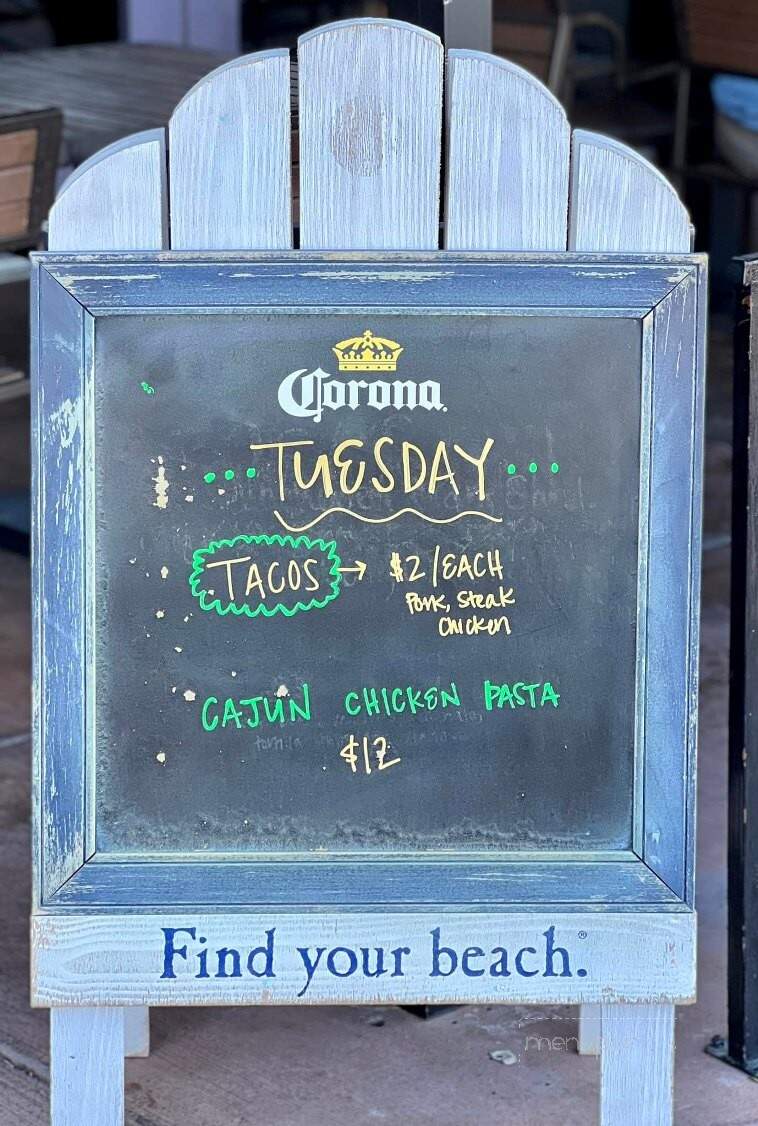 Corona.
...TUESDAY...
TACOS → $2/EACH
Pork, Steak
Chicken
CAJUN CHICKEN PASTA
$12
Find your beach.®